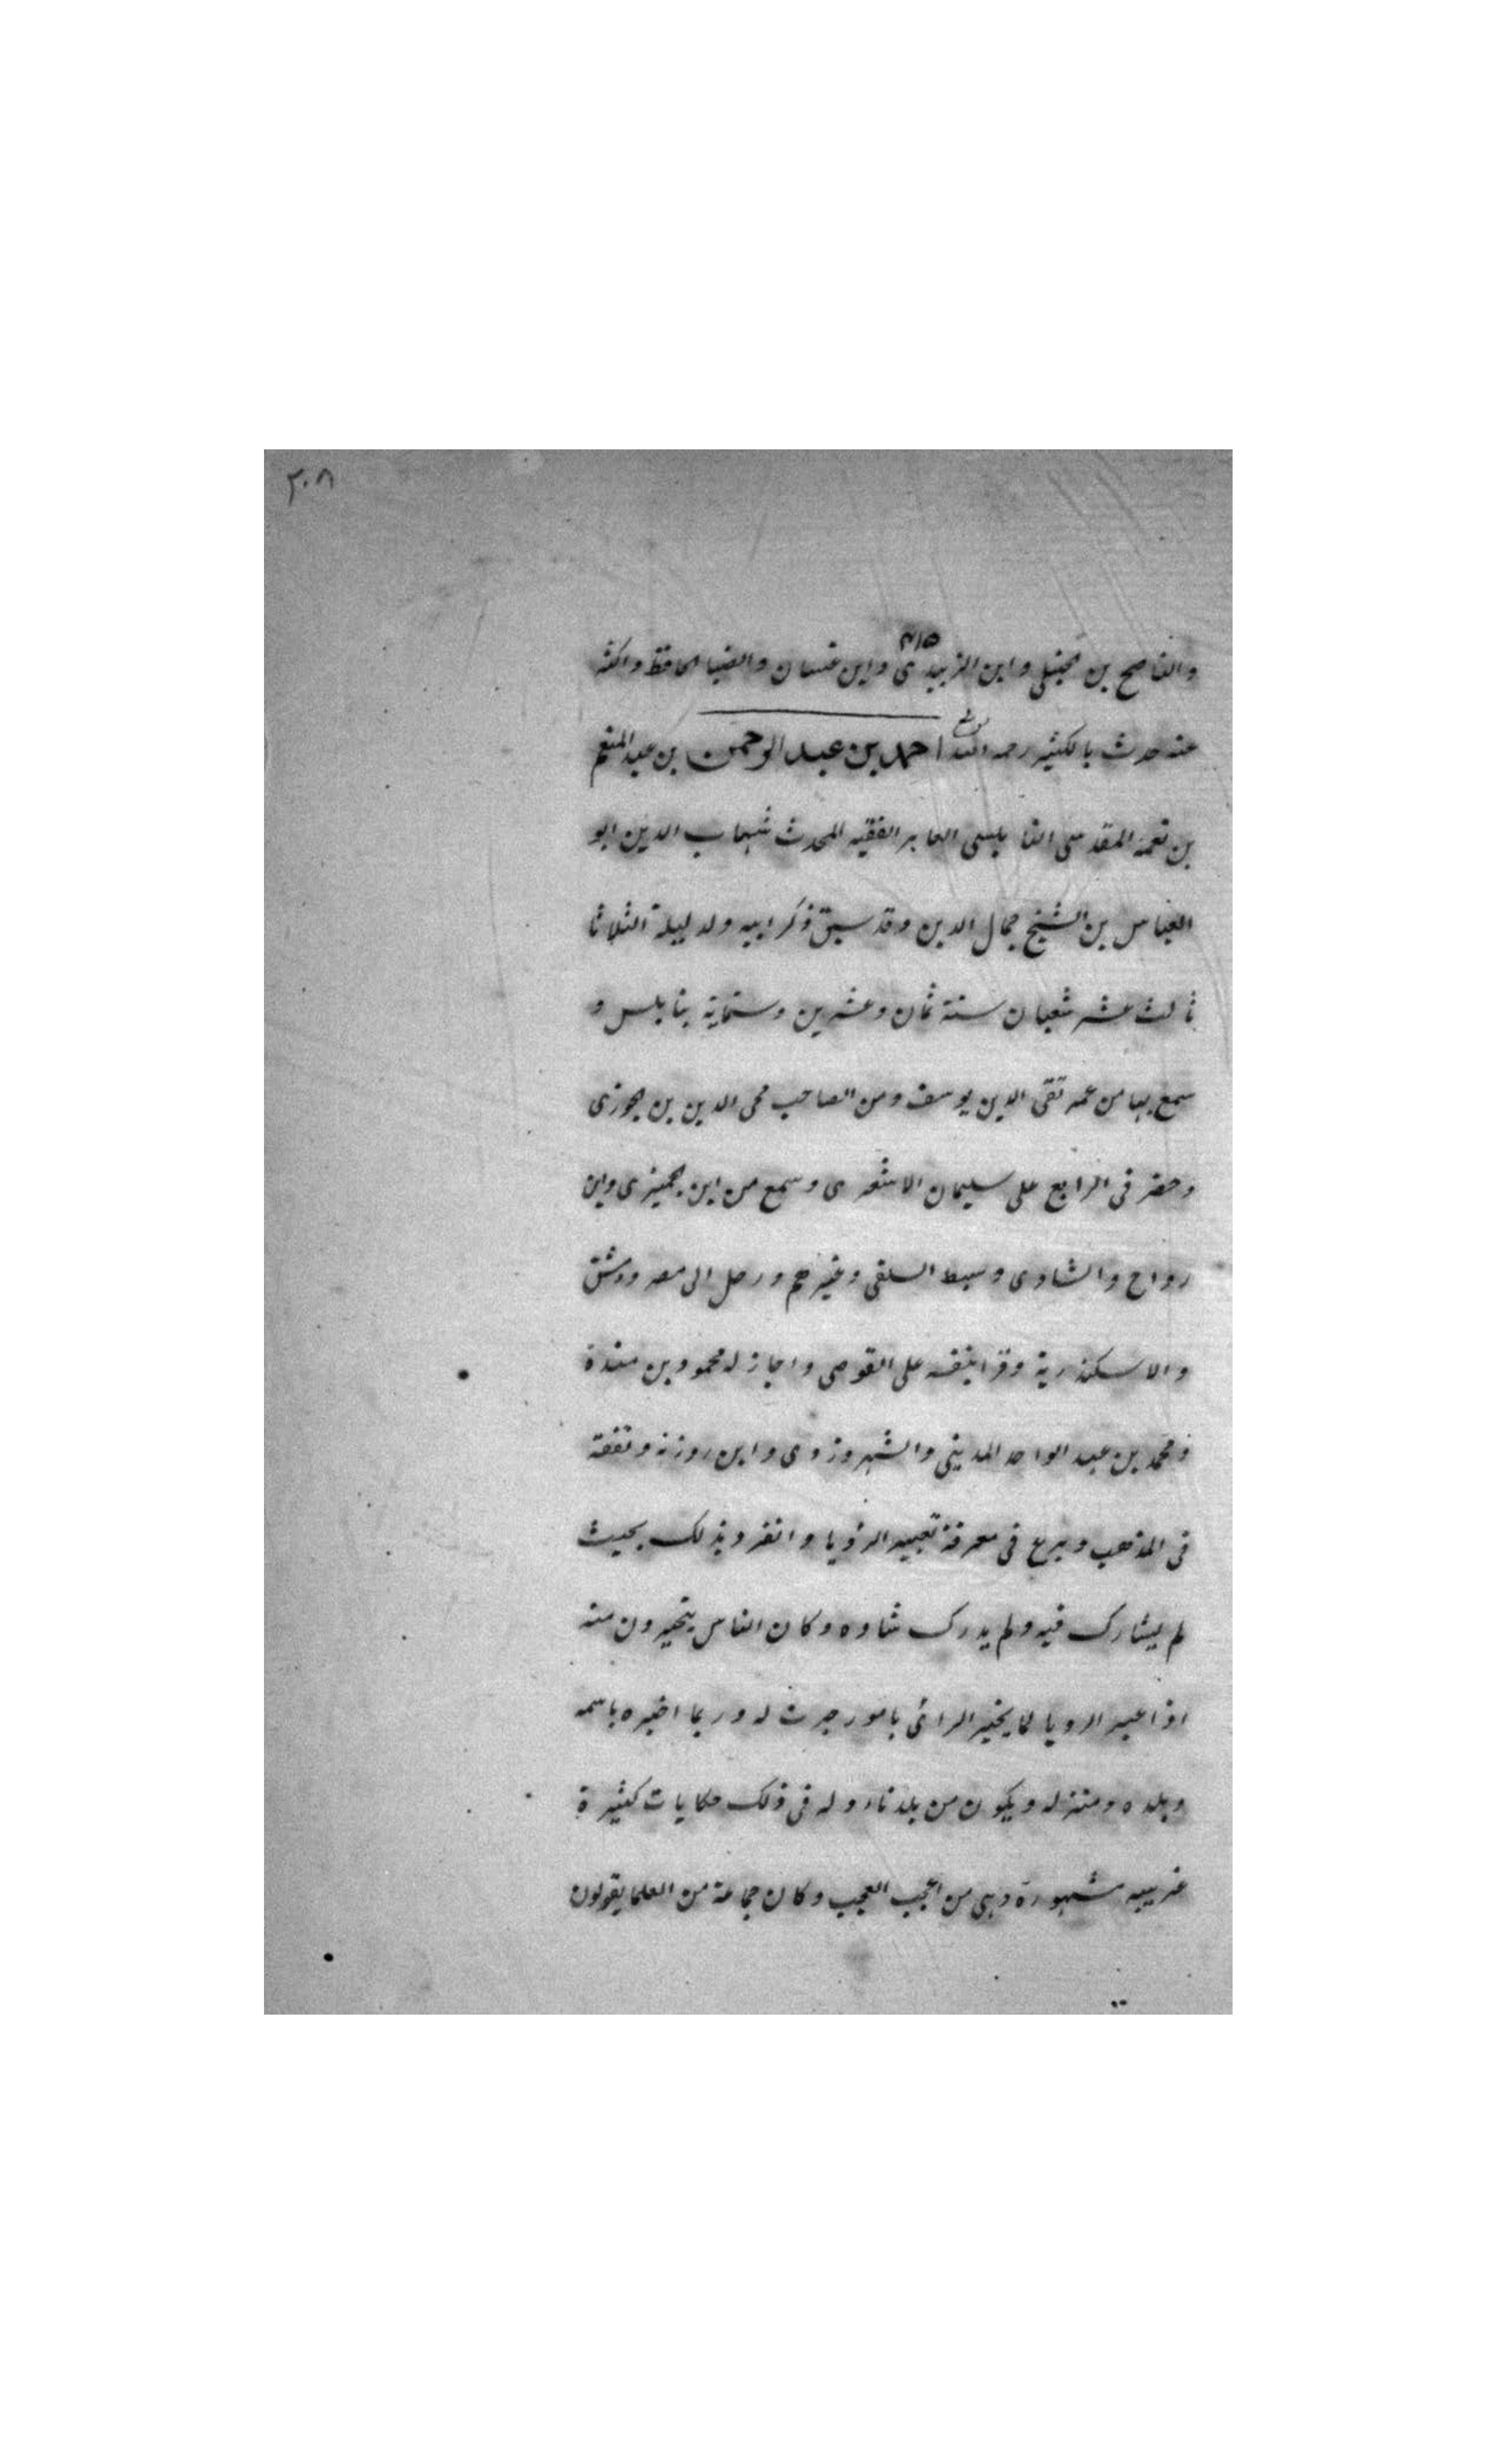 ٢٠٨
والناصح بن الحنبلى وابن الزبيدى وابن غسان والضيا الحافظ واكثر
عنه حدث بالكثير رحمه الله احمد بن عبد الرحمن بن عبد المنعم
بن نعمة المقدسى النابلسى العابر الفقيه المحدث شهاب الدين ابو
العباس بن الشيخ جمال الدين وقد سبق ذكر ابيه ولد ليلة الثلاثا
ثالث عشر شعبان سنة ثمان وعشرين وستماية بنابلس و
سمع بها من عمه تقى الدين يوسف ومن الصاحب محى الدين بن الجوزى
وحضر فى الرابع على سليمان الاشعرى وسمع من ابن الجميزى وابن
رواح والشاوى وسبط السلفى وغيرهم ورحل الى مصر ودمشق
والاسكندرية وقرا بنفسه على القوصى واجاز له محمود بن مندة
ومحمد بن عبد الواحد المدينى والشهروزوى وابن روزنه وتفقه
فى المذهب وبرع فى معرفة تعبير الرؤيا وانفرد بذلك بحيث
لم يشارك فيه ولم يدرك شاوه وكان الناس يتحيرون منه
اذا عبر الرويا لما يخبر الرائى بامور جرت له وربما اخبره باسمه
وبلده ومنزله ويكون من بلد ناء وله فى ذلك حكايات كثيرة
غريبه مشهورة وهى من اعجب العجب وكان جماعة من العلما يقولون